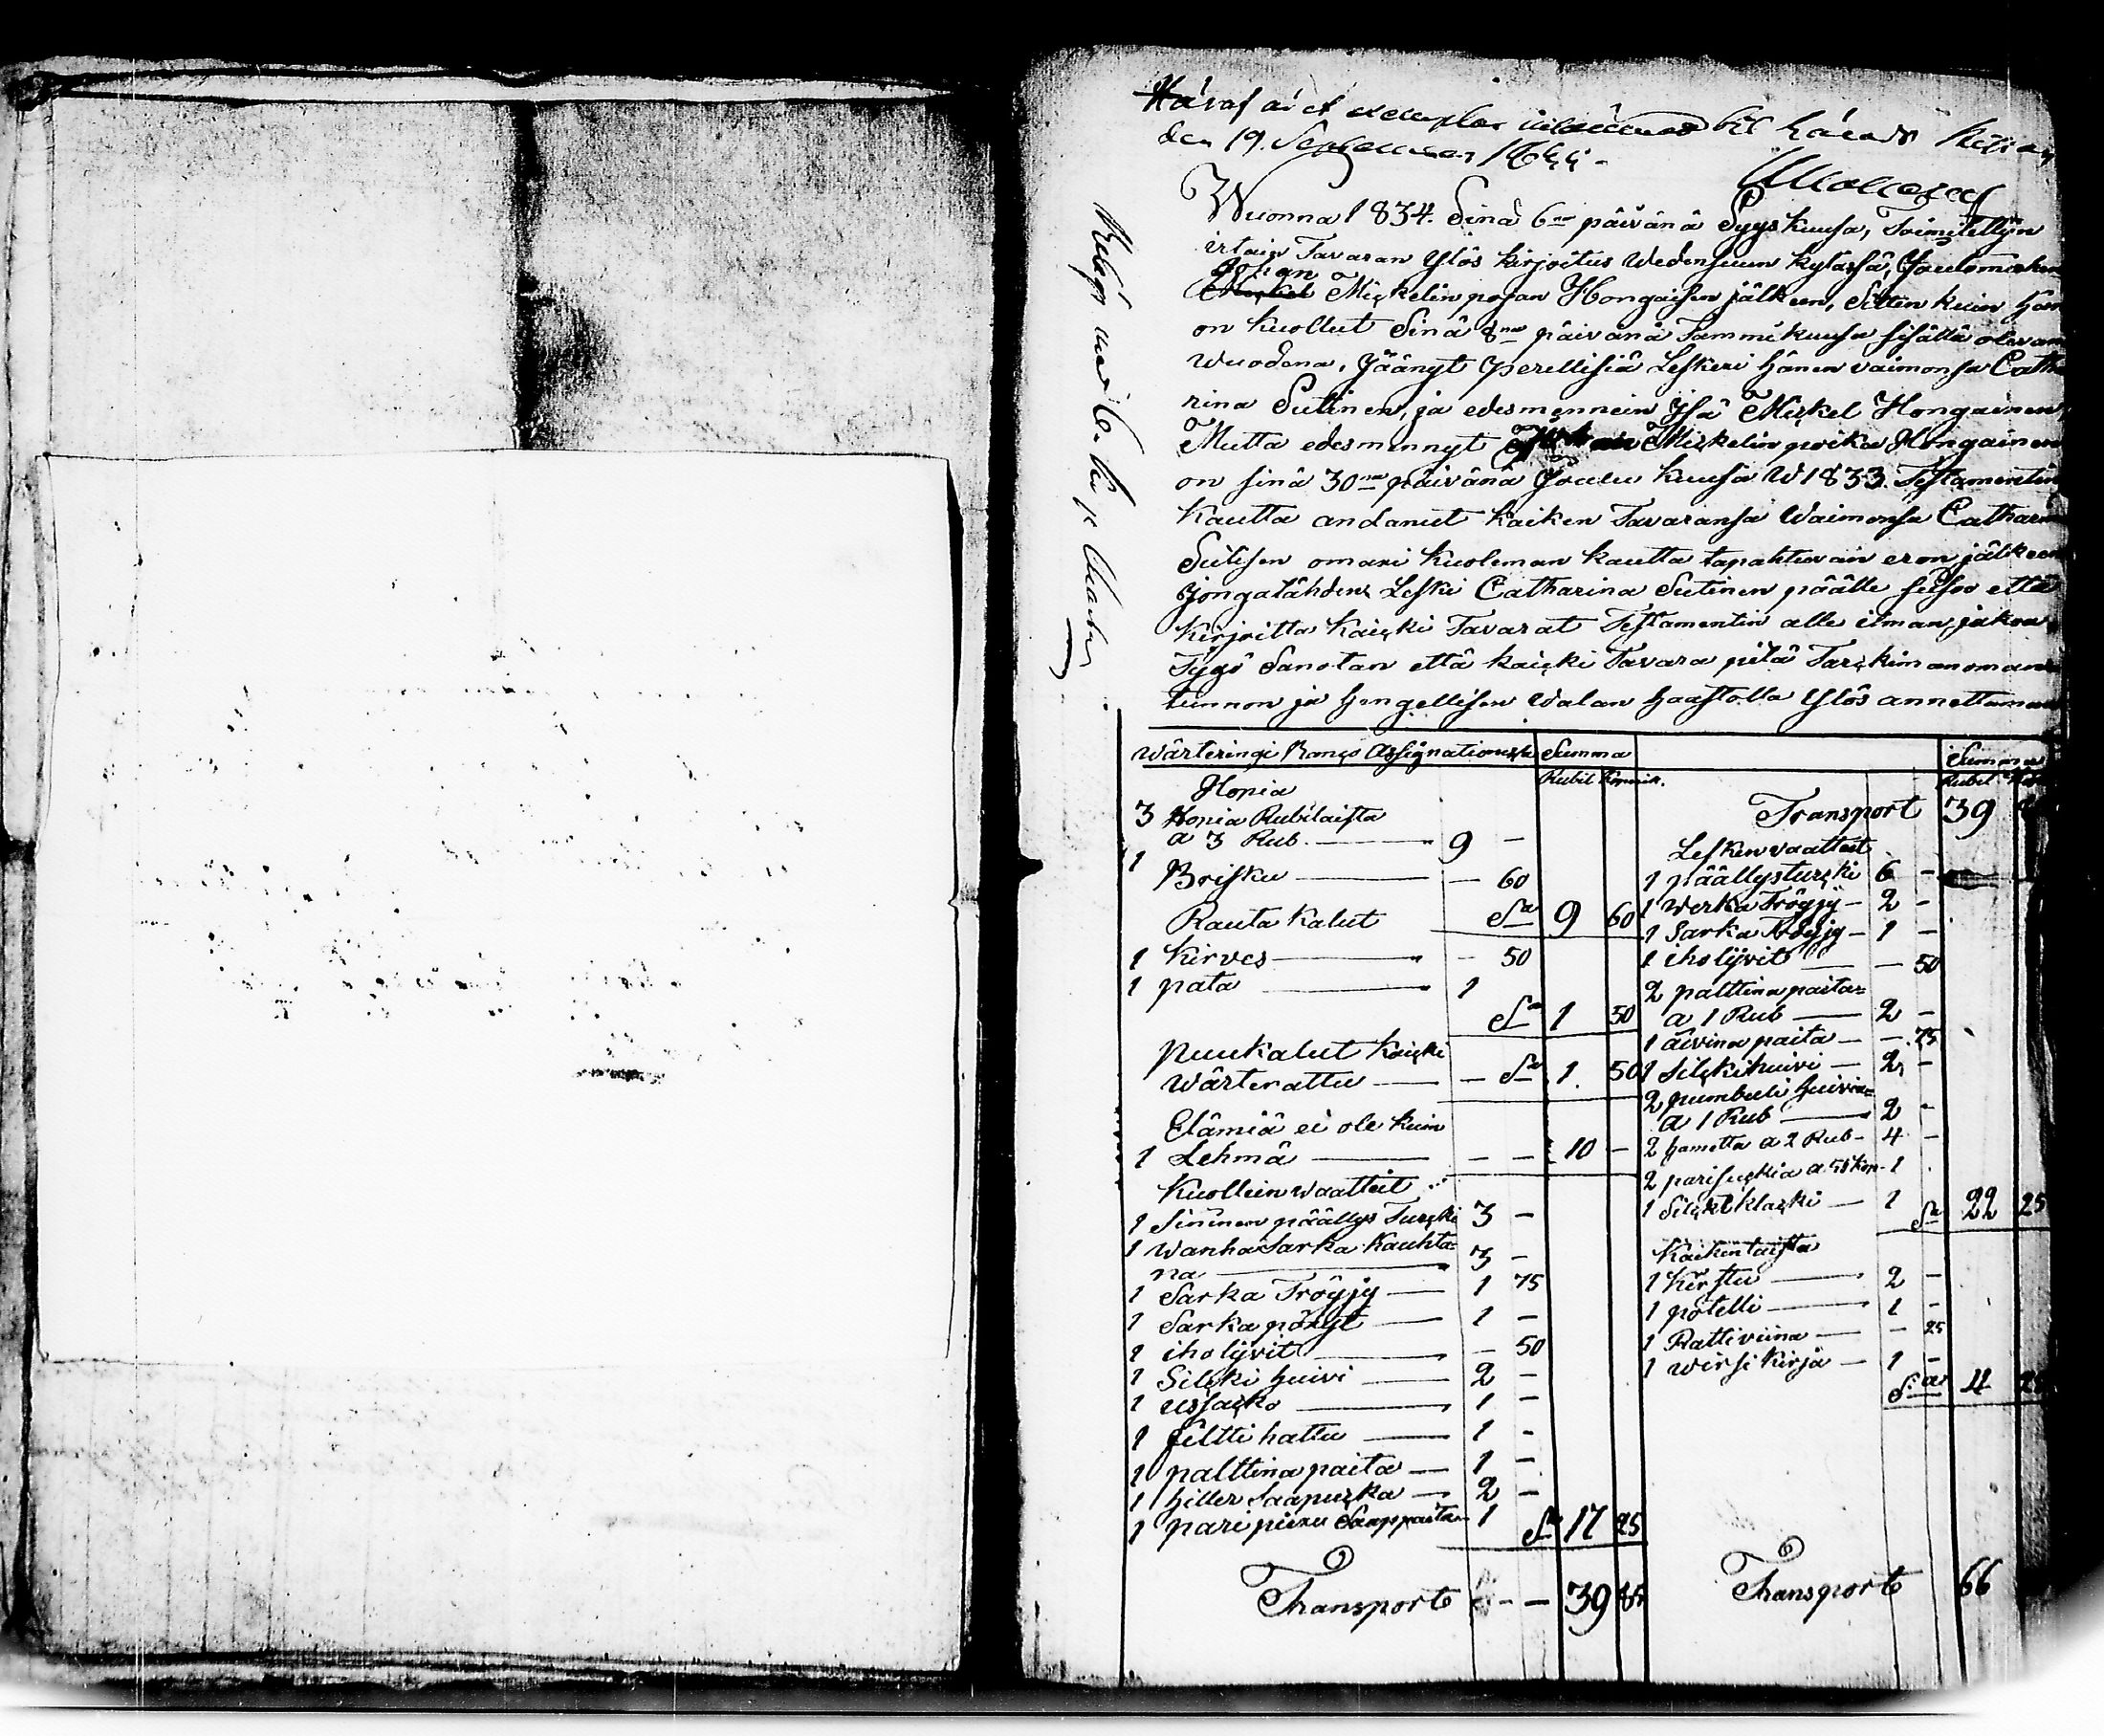 Häraf är et exemplar
den 19. September
Wuonna 1834. Sinä 6na päivänä Syyskuusa, Toimitettijn
irtain Tavaran Ylös kirjoitus Wedensuun kylässä,
Johan
Mickelin pojan Hongaisen jälkeen, Sitten kuin hän
on kuollut Sinä 8na päivänä Tammikuusa sisällä olevana
wuodena, Jäänyt Perellisiä Leskexi hänen vaimonsa Catha
rina Sutinen, ja edesmennein Isä Mickel Hongainen,
Mutta edesmennyt Mickelin poika Hongainen
on sinä 30na päivänä Joulu kuusa W 1833. Testamentin
Kautta andanut kaiken Tavaransa Waimonsa Catharina
Sutisen omaxi kuoleman kautta tapahtuvain eron jälkeen
Jongatähden Leski Catharina Sutinen päälle seisoo että
Kirjoitta kaicki Tavarat Testamentin alle ilman jakoa,
Tygö Sanotan että kaicki Tavara pitä Tarckiman oman
tunnon ja hengellisen Walan haastolla Ylös annettaman
Wärteringi Banco Assignationisa Summa
Rubil Kopeik.
Hopia
3 Hopia Rubilaista
a 3 Rub. — 9 —
1 Brisku — — 60
Sa 9 60
Rauta kalut
1 kirves — — 50
1 pata — 1
Sa 1 50
Puukalut kaicki
wärterattu — — Sa 1 50
Elämiä ei ole kuin
1 Lehmä — — — 10 —
Kuollein waatteet
1 Sininen päällys Turcki 3 —
1 wanha Sarka kauhta=
na — 3 —
1 Sarka Tröyjy — 1 75
1 Sarka pöxyt — 1 —
1 iholijvit — — 50
1 Silcki huivi — 2 —
1 ussacko — 1 —
1 filtti hattu — 1 —
1 palttina paita — 1 —
1 hiller Saapucka — 2 —
1 pari piexu Saappaita 1
Sa 17 25
Transport — — 39 85
Summa
Rubil
Transport 39
Lesken vaatteet
1 päällysturcki 6 —
1 werka Tröyjy — 2 —
1 Sarka Tröyjy — 1 —
1 iholijvit — 50
2 palttina paitaa=
a 1 Rub — 2 —
1 äivina paita — — 75
1 Silckihuivi — 2 —
2 pumbuli huivia=
a 1 Rub — 2 —
2 hametta a 2 Rub — 4 —
2 pari suckia a 50 kop — 1
1 Silckiklacki — 1 Sa 22 25
Kaikenlaista
1 kirstu — 2 —
1 potelli — 1 —
1 Ratti viina — — 25
1 wirsi kirja — 1 —
Sa 4 25
Transport 66